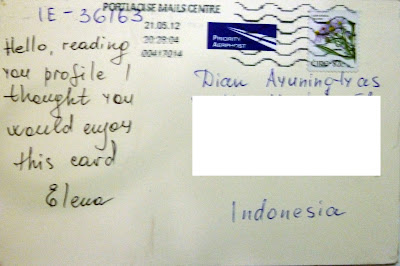 IE-36163
PORTLAOISE MAILS CENTRE
21.05.12
20:29:04
00417014
PRIORITY
AERPHOST
Hello, reading
you profile I
thought you
would enjoy
this card
Elena
Dian Ayuningtyas
Indonesia